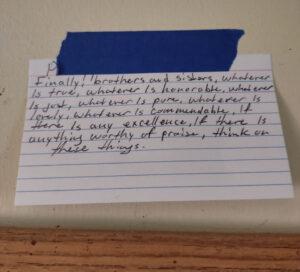 Finally, brothers and sisters, whatever
is true, whatever is honorable, whatever
is just, whatever is pure, whatever is
lovely, whatever is commendable, if
there is any excellence, if there is
anything worthy of praise, think on
these things.